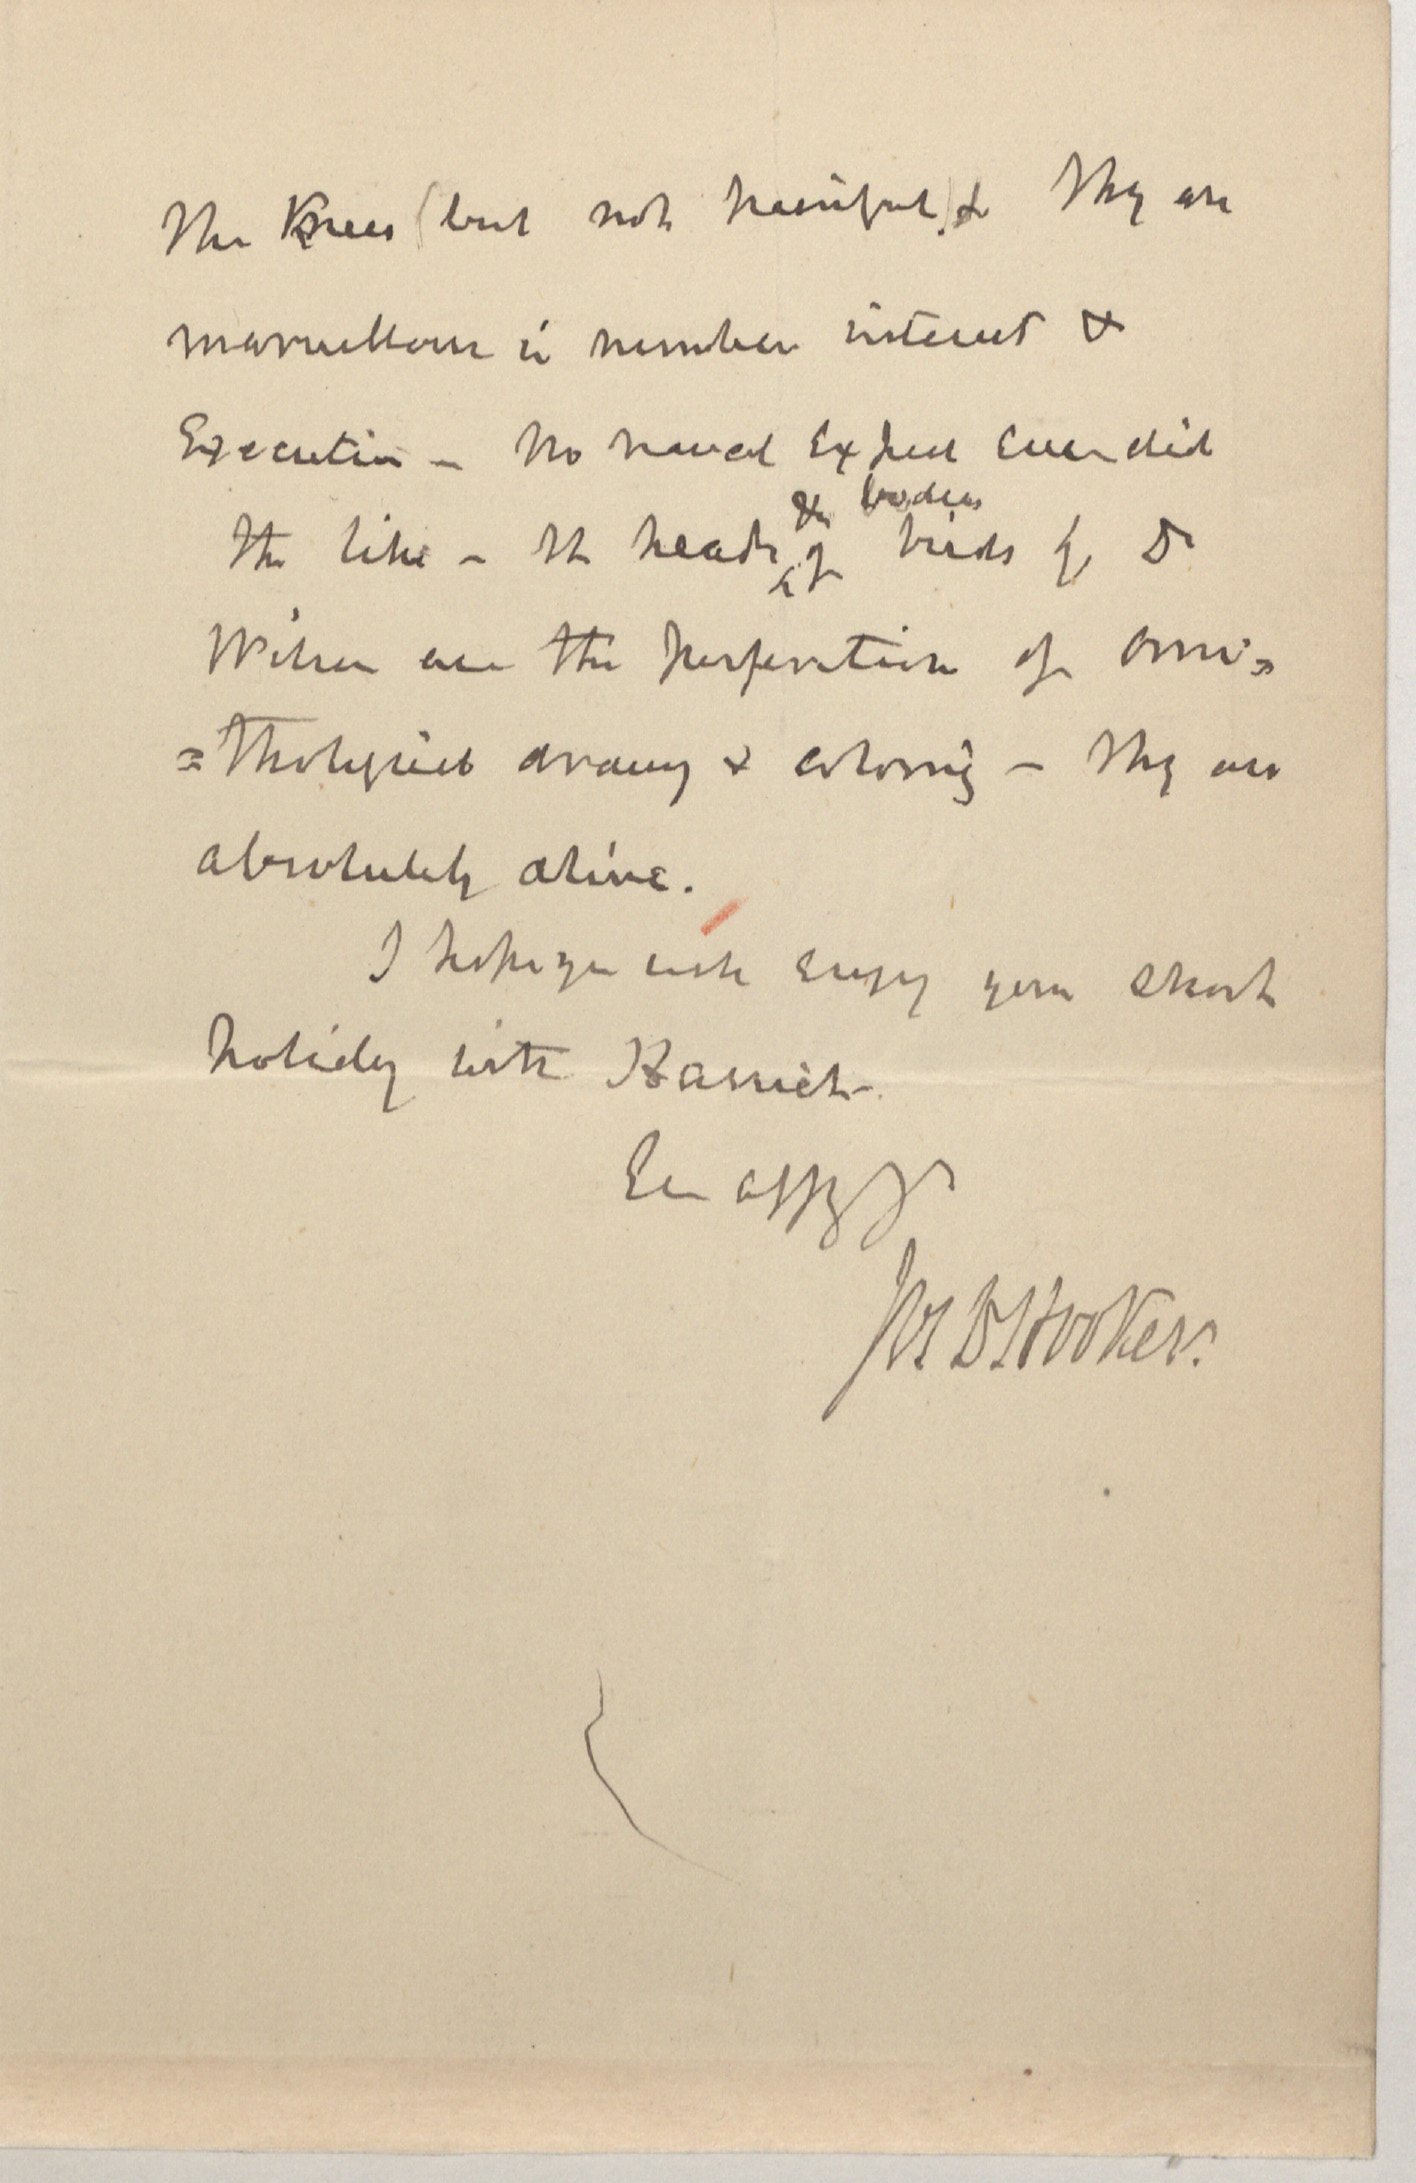 the Knees (but not painful) & they are
marvellous in number interest &
Execution – No naval Exped ever did
the like – the heads & bodies of birds by Dr
Wilson are the perfection of Orni=
=thological drawing & coloring – they are
absolutely alive.
I hope you will enjoy your short
holiday with Harriet –
Ev affy yr
Jos D Hooker.